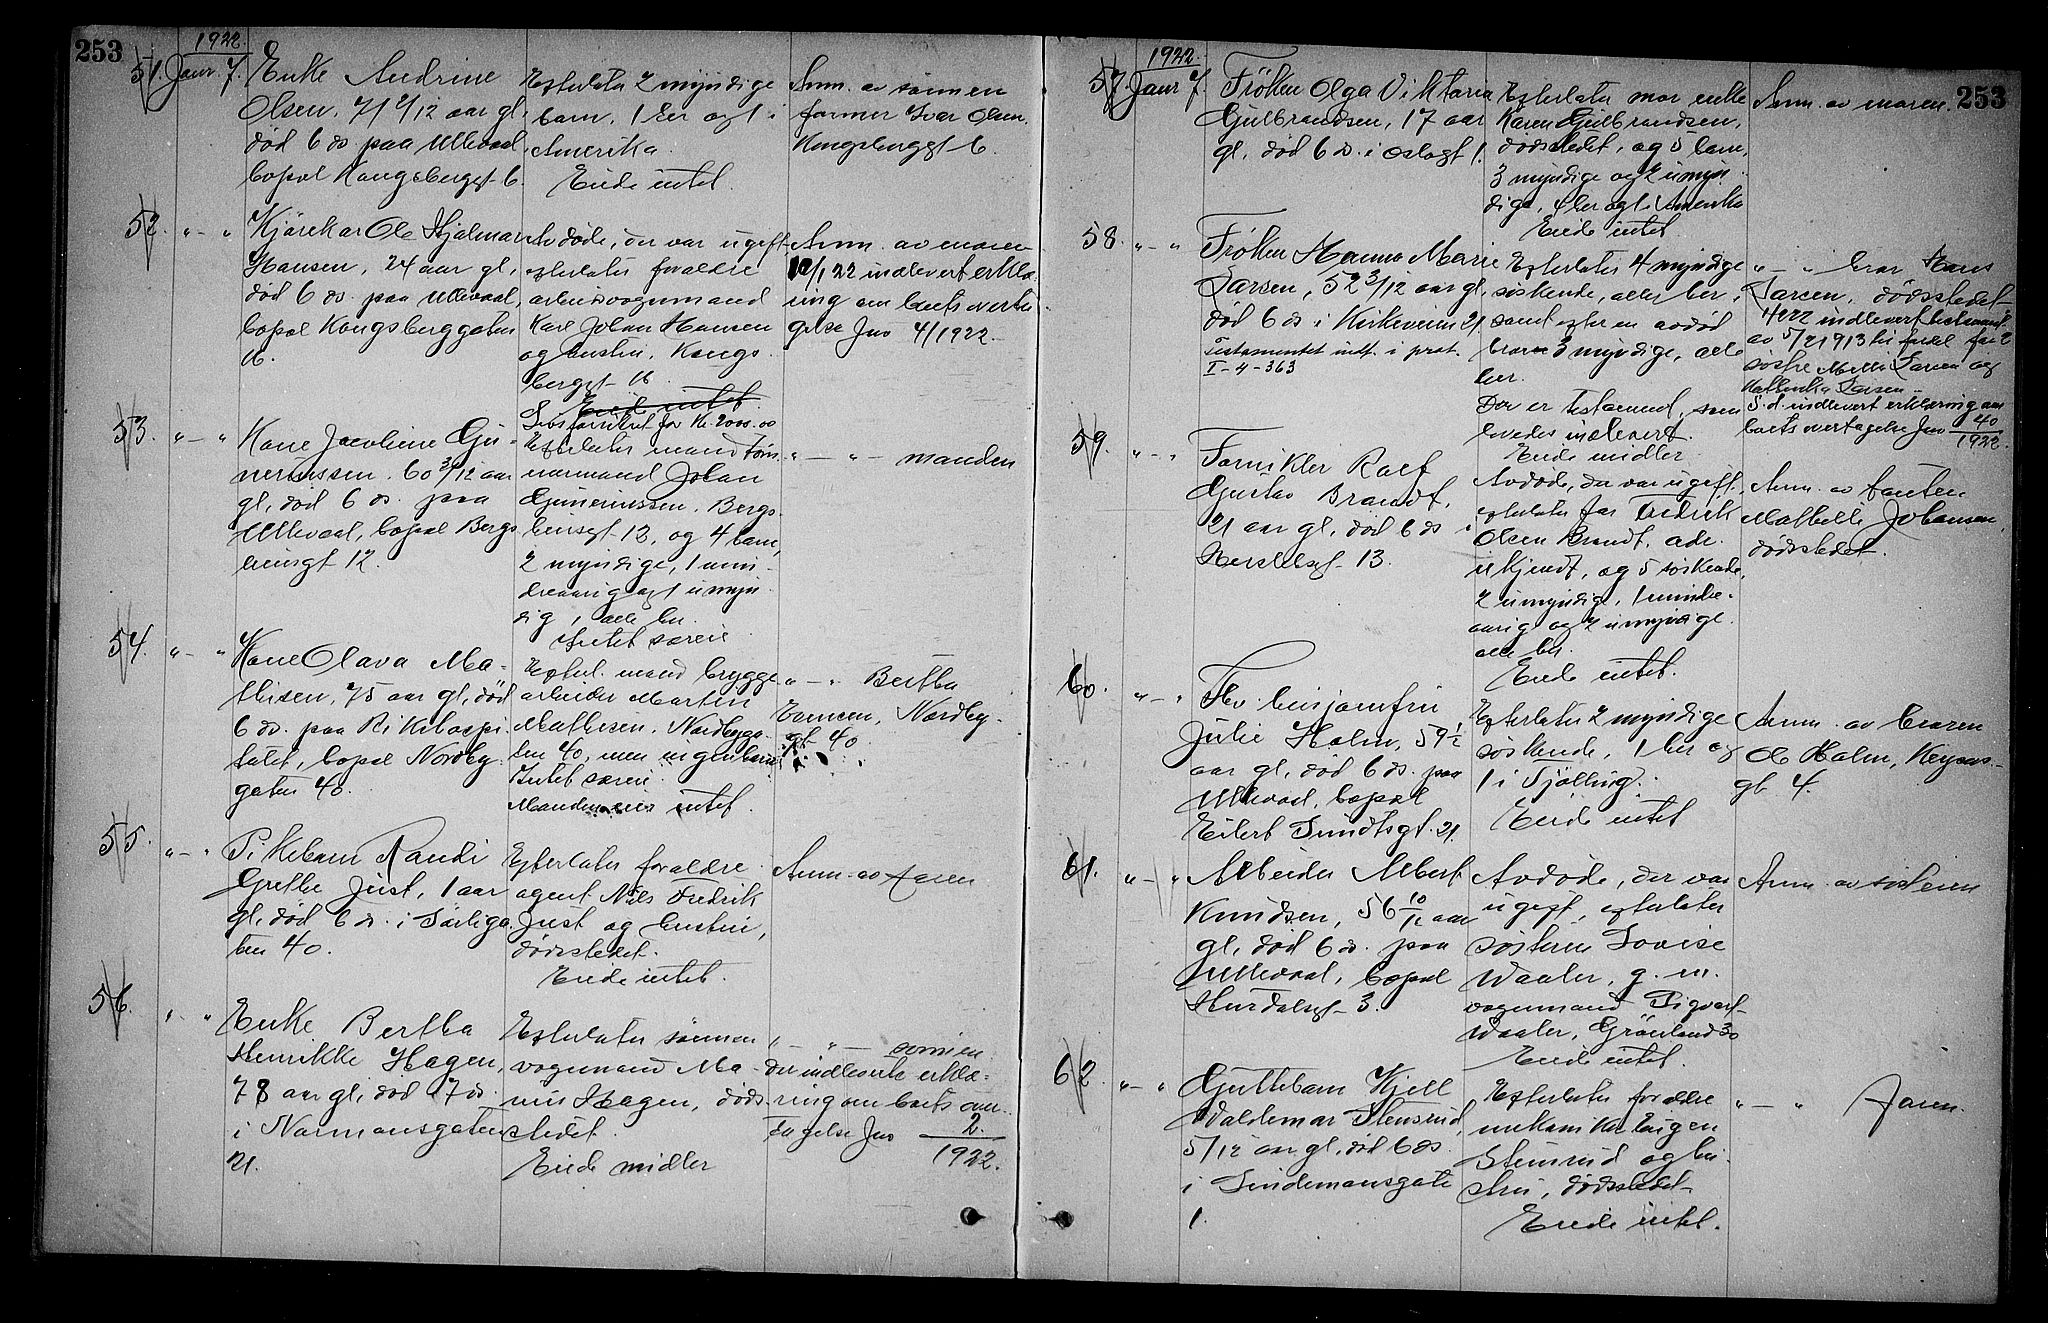 253
1922
51. Janr. 7. Enke Andrine
Olsen, 71 2/12 aar gl,
død 6 ds paa Ullevaal,
bopæl Kongsberggt 6.
Efterlater 2 myndige
barn, 1 her og 1 i
Amerika.
Eiede intet.
Anm. av sønnen
former Ivar Olsen,
Kongsberggt 6.
52. " - " Kjørekar Ole Hjalmar
Hansen, 24 aar gl,
død 6 ds. paa Ullevaal,
bopæl Kongsberggaten
16.
Avdøde, der var ugift,
efterlater forældre
arbeidsvognmand
Karl Johan Hansen
og hustru, Kongs-
berggt 16
Eiede intet.
Livsforsikret for Kr. 2000.00
Anm. av moren
12/1 22 indlevert erklæ-
ring om boets overta-
gelse Jno 4/1922.
53. " - " Kone Jacobine Gu-
neriussen, 60 3/12 aar
gl, død 6 ds. paa
Ullevaal, bopæl Bergs-
liensgt 12.
Efterlater mand tøm-
mermand Johan
Guneriussen, Bergs-
liensgt 12, og 4 barn,
2 myndige, 1 min-
dreaarig og 1 umyn-
dig, alle her.
Intet særeie
" - " - manden
54. " - " Kone Olava Ma-
thisen, 75 aar gl, død
6 ds. paa Rikshospi-
talet, bopæl Nordby-
gaten 40.
Efterl. mand brygge-
arbeider Martin
Mathisen, Nordbyga-
ten 40, men ingen barn
Intet særeie.
Manden eier intet.
" - " Bertha
Nordby-
gt 40.
55. " - " Pikebarn Randi
Grethe Just, 1 aar
gl, død 6 ds. i Sørliga-
ten 40.
Efterlater forældre
agent Nils Fredrik
Just og hustru,
dødsstedet.
Eiede intet.
Anm. av faren
56. " - " Enke Bertha
Henrikke Hagen,
78 aar gl, død 7 ds.
i Normansgaten
21.
Efterlater sønnen
vognmand Ma-
rius Hagen, døds-
stedet.
Eiede midler
" - " - sønnen
der indleverte erklæ-
ring om boets over-
tagelse Jno 2/1922.
1922.
253
57. Janr 7. Frøken Olga Viktoria
Gulbrandsen, 17 aar
gl, død 6 ds. i Oslogt 1.
Efterlater mor enke
Karen Gulbrandsen,
dødsstedet, og 5
3 myndige og 2 umyn-
dige, 4 her og 1 i Amerika
Eiede intet.
Anm. av moren.
58. " - " Frøken Hanna Marie
Larsen, 52 3/12 aar gl,
død 6 ds i Kirkeveien 21
Testamentet indf. i prot.
I-4-363
Efterlater 4 myndige
søskende, alle her,
samt efter en avdød
bror 3 myndige, alle
her.
Der er testament, som
indlevert.
Eiede midler
" - " bror Hans
Larsen, dødsstedet
indlevert testament
av 5/2 1913 til fordel for 2
søstre Milli Larsen og
Larsen.
S. d. indlevert erklæring om
boets overtagelse Jno 40/1922.
59. " - " Fornikler Rolf
Gustav Brandt,
21 aar gl, død 6 ds i
Herslebsgt 13.
Avdøde, der var ugift,
efterlater far Fredrik
Olsen Brandt, adr.
ukjendt, og 5 søskende,
2 myndige, 1 mindre-
aarig og 2 umyndige
alle her.
Eiede intet.
Anm. av tanten
Mathilde Johansen,
dødsstedet.
60. " - " Fhv husjomfru
Julie Holm, 59 1/2
aar gl, død 6 ds. paa
Ullevaal, bopæl
Eilert Sundtsgt. 21.
Efterlater 2 myndige
søskende, 1 her og
1 i Tjølling.
Eiede intet
Anm. av broren
Ole Holm, Keysers-
gt 4.
61. " - " Arbeider Albert
Knudsen, 56 10/12 aar
gl, død 6 ds. paa
Ullevaal, bopæl
Hurdalsgt 3.
Avdøde, der var
ugift, efterlater
søsteren Lovise
Waaler, g. m.
vognmand Sigvart
Waaler, Grønland 30
Eiede intet.
Anm. av søsteren
62. " - " Guttebarn Kjell
Waldemar Stensrud,
5/12 aar gl, død 6 ds
i Lindemansgate
1.
Efterlater forældre
mekaniker Birger
Stensrud og hu-
stru, dødsstedet
Eiede intet.
" - " faren.